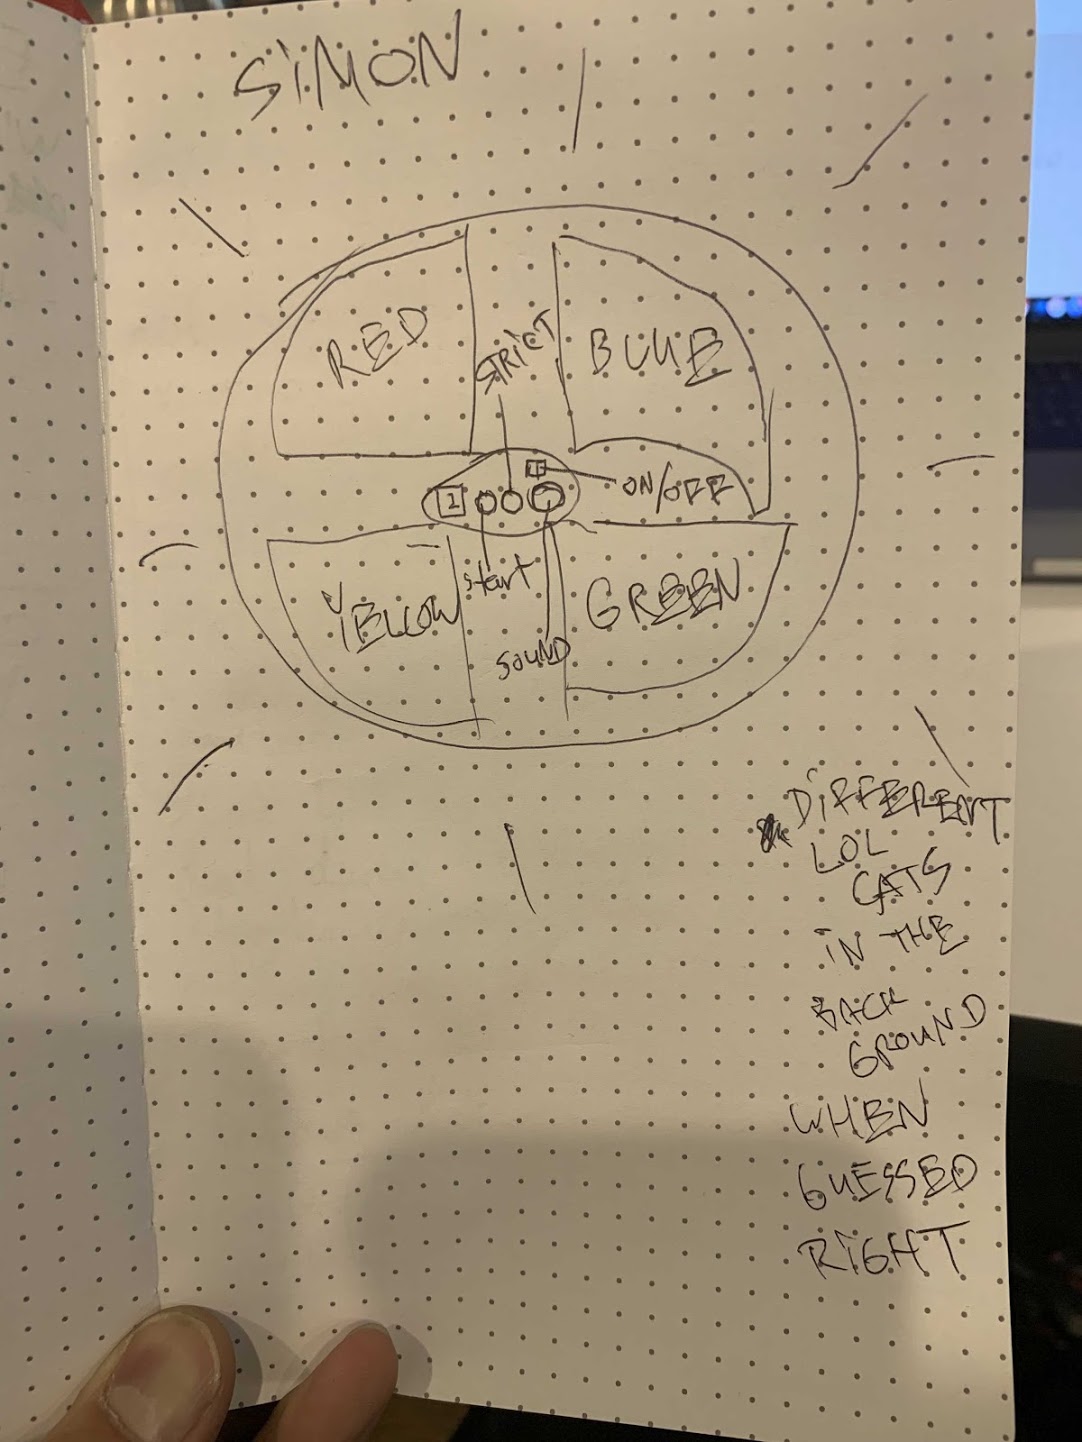 SiMON
RED
STRICT
BLUE
1
ON/OFF
YELLOW
start
GREEN
SOUND
* DiFFERENT
LOL
CATS
iN THE
BACK
GROUND
WHEN
GUESSED
RiGHT